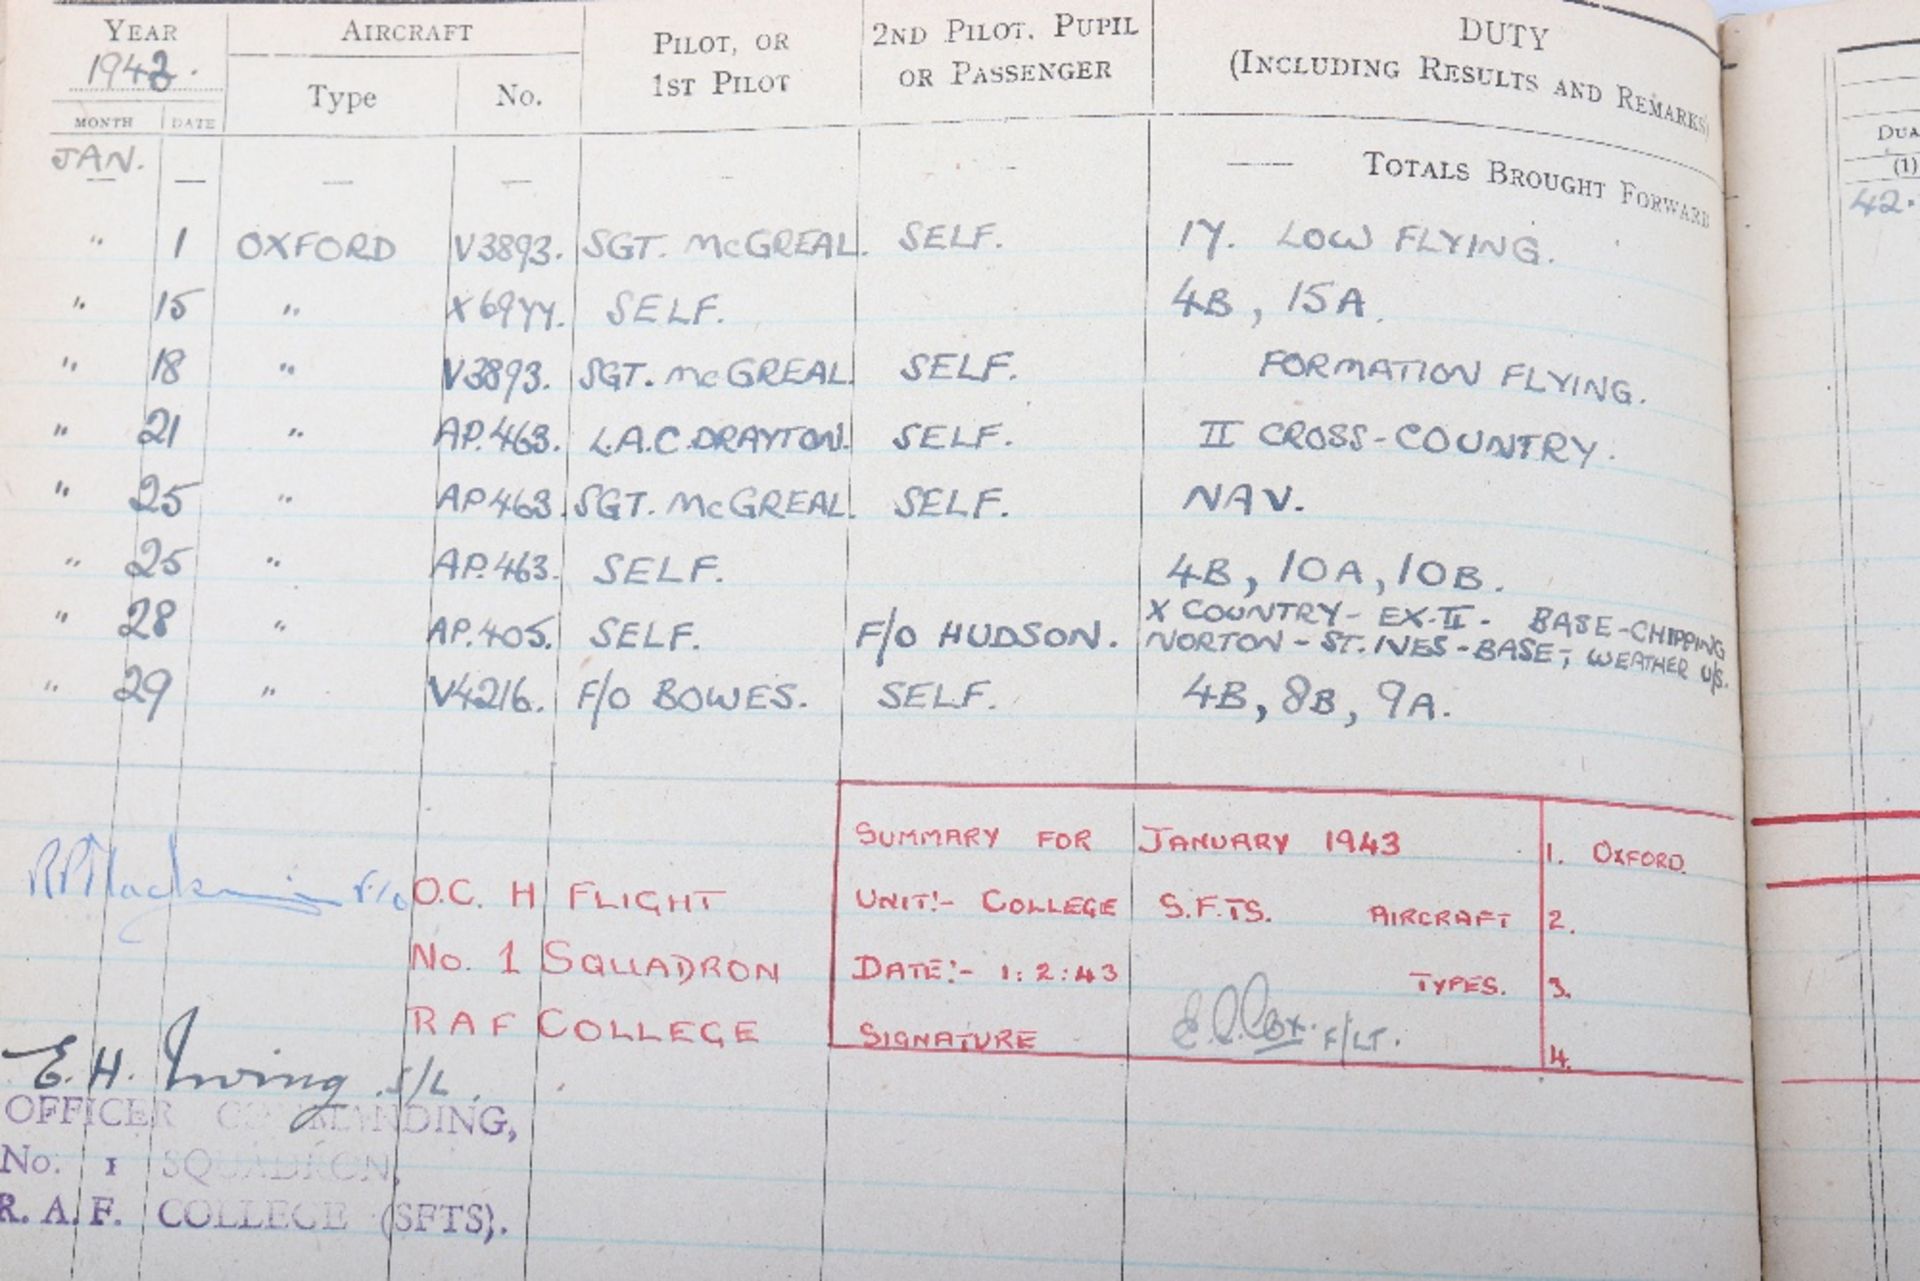 YEAR AIRCRAFT PILOT, OR 2ND PILOT, PUPIL DUTY
1943. Type No. 1ST PILOT OR PASSENGER (INCLUDING RESULTS AND REMARKS)
MONTH DATE
JAN.
— — — — - - —— TOTALS BROUGHT FORWARD
" 1 OXFORD V3893. SGT. McGREAL. SELF. 17. LOW FLYING.
" 15 " X6977. SELF. 4B, 15A.
" 18 " V3893. SGT. McGREAL. SELF. FORMATION FLYING.
" 21 " AP.463. L.A.C. DRAYTON. SELF. II CROSS-COUNTRY.
" 25 " AP.463. SGT. McGREAL. SELF. NAV.
" 25 " AP.463. SELF. 4B, 10A, 10B.
" 28 " AP.405. SELF. F/O HUDSON. X COUNTRY - EX-II - BASE-CHIPPING
NORTON - ST. IVES - BASE; WEATHER U/S.
" 29 " V4216. F/O BOWES. SELF. 4B, 8B, 9A.
SUMMARY FOR JANUARY 1943 1. OXFORD.
UNIT:- COLLEGE S.F.T.S. AIRCRAFT 2.
DATE:- 1:2:43 TYPES. 3.
SIGNATURE E. Cox. F/LT. 4.
F/O O.C. H FLIGHT
No. 1 SQUADRON
RAF COLLEGE
E. H. Irving S/L.
OFFICER COMMANDING,
No. 1 SQUADRON,
R. A. F. COLLEGE (SFTS).
DUA
(1)
42.